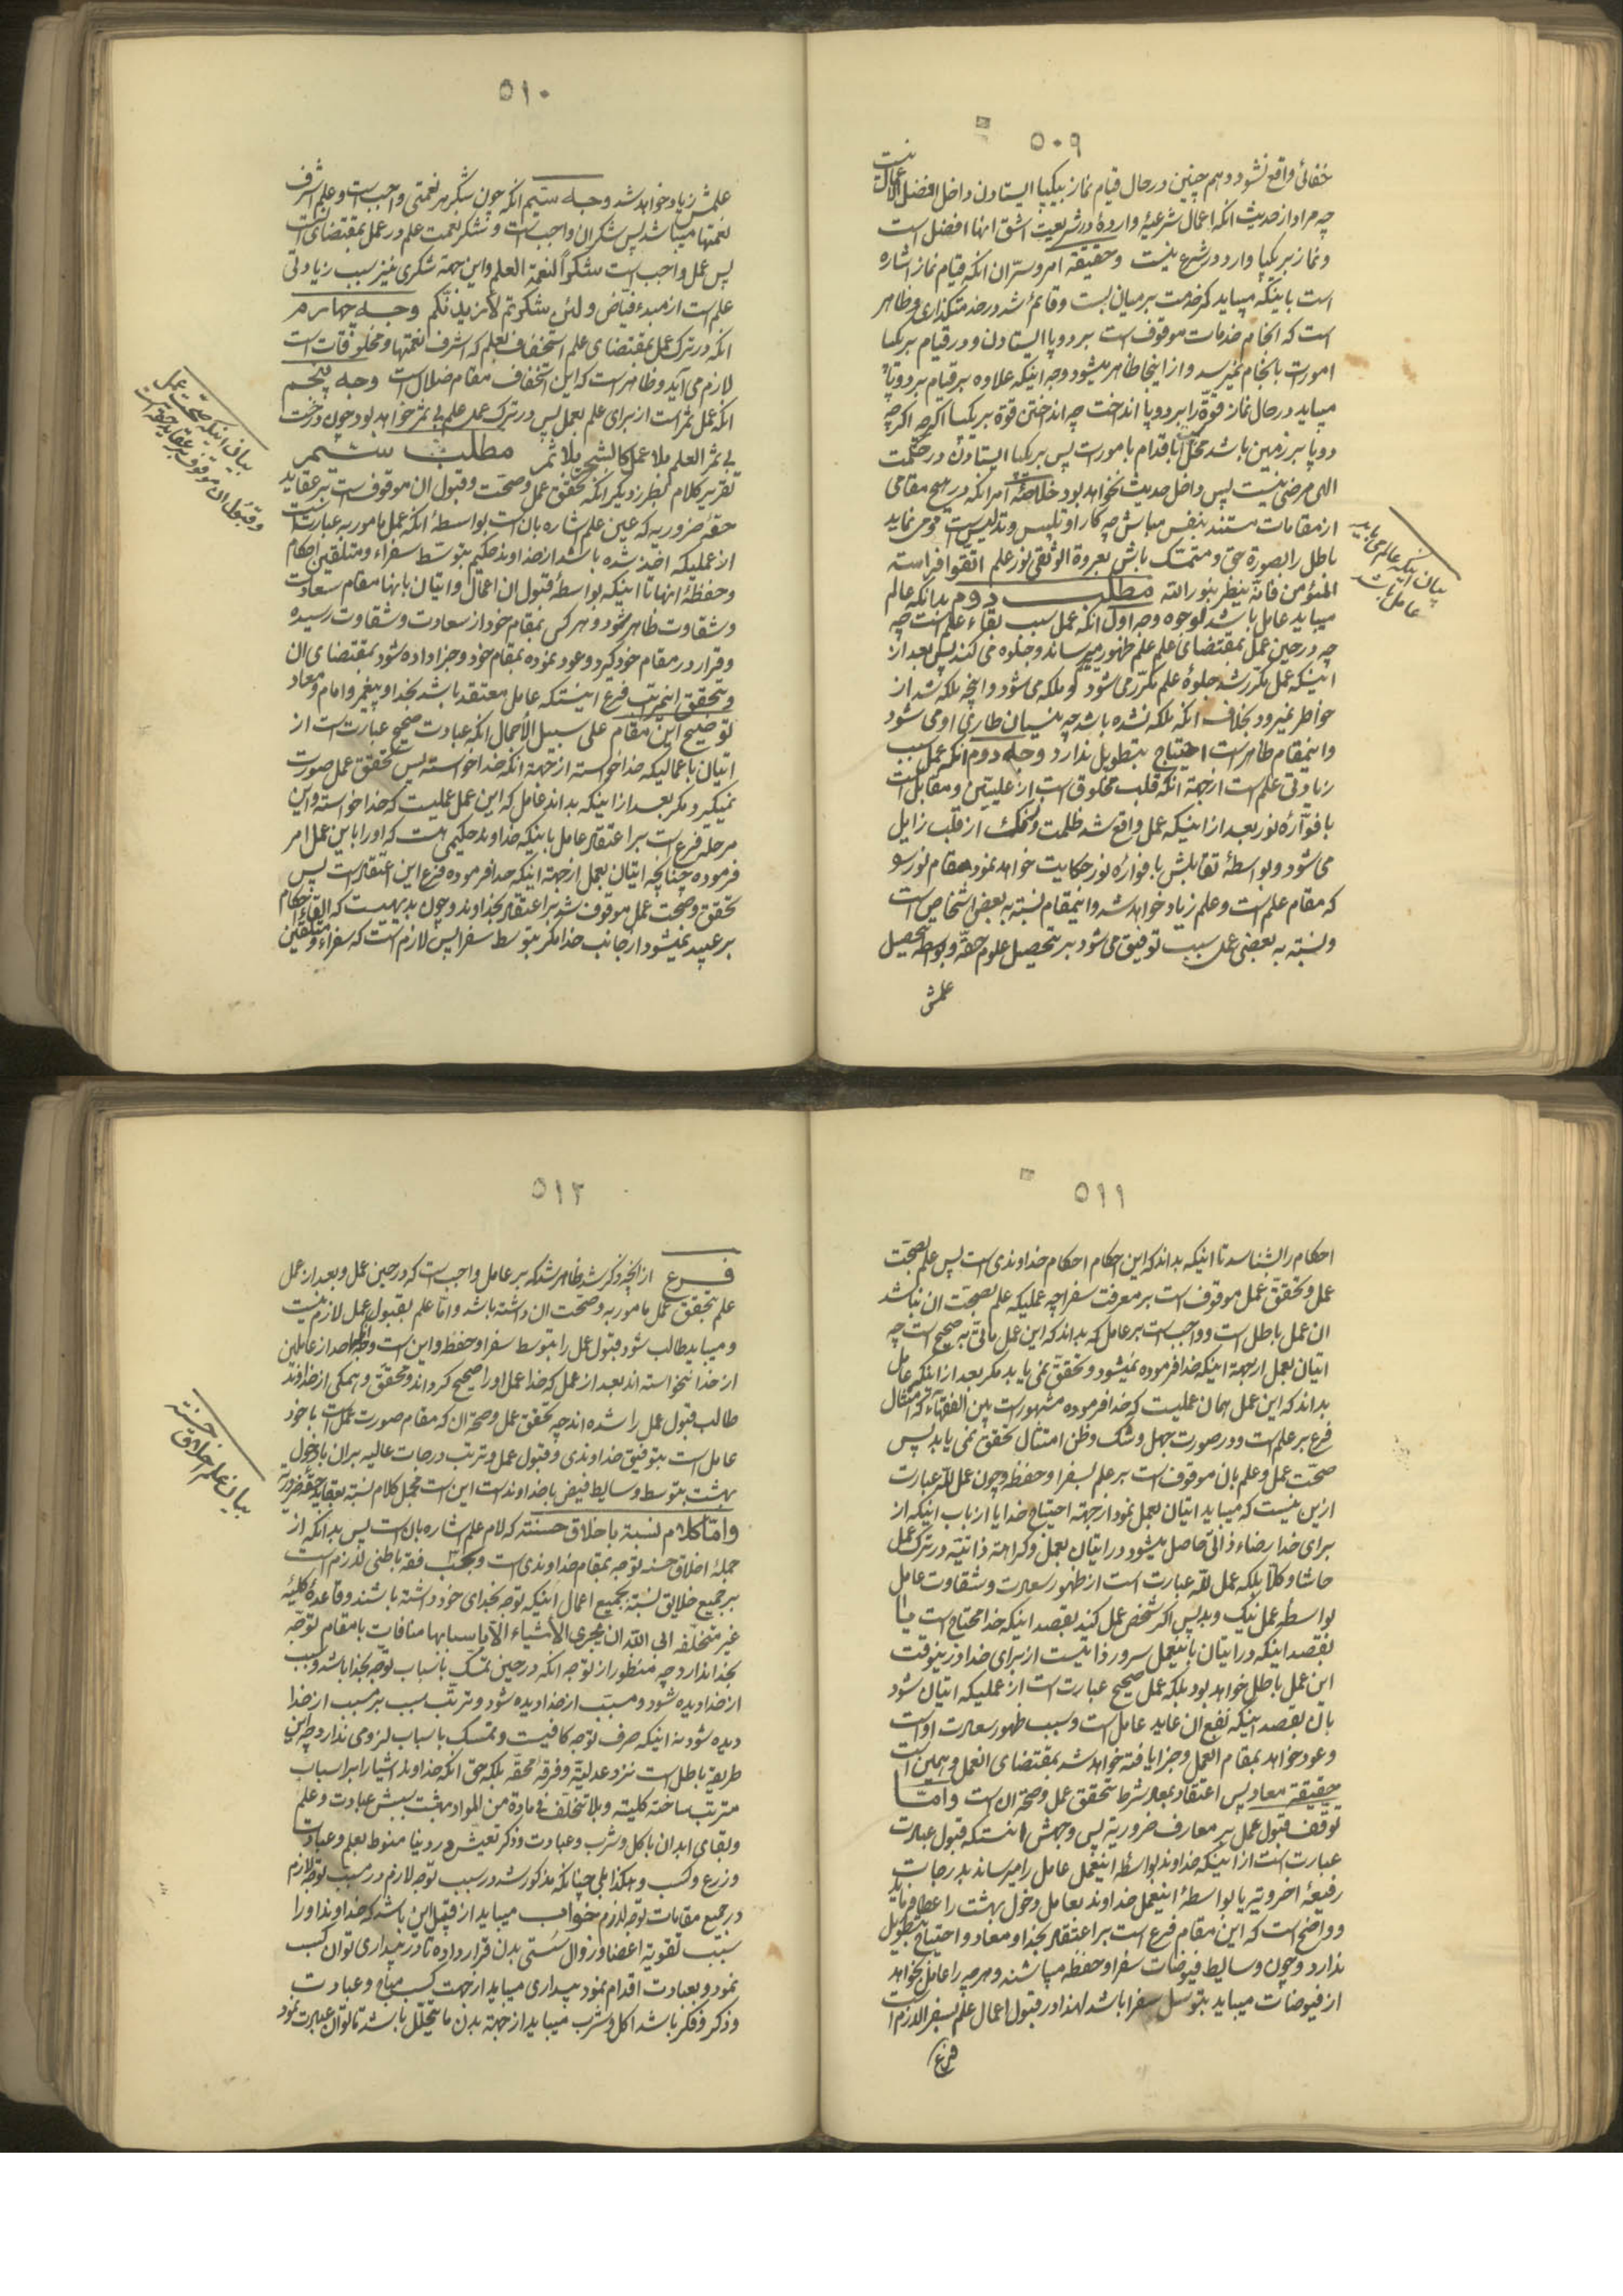 ۵۰۹
خفائی واقع نشود و هم چنین در حال قیام نماز بیکپا ایستادن داخل افضل الاعمال نیست
چه مراد از حدیث انکه اعمال شرعیهٔ واردهٔ در شریعت اشق انها افضل است
و نماز بر یکپا وارد در شرع نیست وحقیقة امر و سرّ ان انکه قیام نماز اشاره
است باینکه میباید کمر خدمت بر میان بست و قائم شد در خدمتکذاری و ظاهر
است که انجام خدمات موقوف است بر دو پا ایستادن و در قیام بر یکپا
امورات بانجام نمیرسد و از اینجا ظاهر میشود وجه اینکه علاوه بر قیام بر دو پا
میباید در حال نماز قوّة را بر دو پا انداخت چه انداختن قوة بر یکپا اکرچه
دو پا بر زمین باشد مخل اقدام بامورات پس بر یکپا ایستادن در حکمت
الهی مرضی نیست پس داخل حدیث نخواهد بود خلاصهٔ امر انکه در هیچ مقامی
از مقامات مستند بنفس مباش چه کار او تلبیس و تدلیس است می نماید
باطل را بصورة حق و متمسّک باش بعروة الوثقی نور علم اتّقوا فراسة
المؤمن فانّه ینظر بنور الله مطلب دوم بدانکه عالم
میباید عامل باشد لوجوه وجه اول انکه عمل سبب بقاء علم است چه
چه در حین عمل بمقتضای علم علم ظهور میرساند و جلوه می کند پس بعد از
اینکه عمل مکرّر شد جلوهٔ علم مکرّر می شود و ملکه می شود و انچه ملکه شد از
خواطر نمیرود بخلاف انکه ملکه نشده باشد چه نسیان طاری او می شود
و اینمقام ظاهر است احتیاج بتطویل ندارد وجه دوم انکه عمل سبب
زیادتی علم است از جهة انکه قلب مخلوق است از علیین و مقابل است
با فوّارهٔ نور بعد از اینکه عمل واقع شد ظلمت از قلب زایل
می شود و بواسطهٔ تقابلش با فوارهٔ نور حکایت خواهد نمود مقام نور
که مقام علم است و علم زیاد خواهد شد و اینمقام نسبة به بعض اشخاص است
و نسبة به بعضی عمل سبب توفیق می شود بر تحصیل علوم حقّه و بواسطهٔ تحصیل
علمش
بیان اینکه عالم می باید
عامل باشد
۵۱۰
علمش زیاد خواهد شد وجه سیّم انکه چون شکر هر نعمتی واجب است و علم اشرف
نعمتها میباشد پس شکر ان واجب است و شکر نعمت علم در عمل بمقتضای است
پس عمل واجب است شکراً لنعمة العلم و این جهة شکری نیز سبب زیادتی
علم است از مبدء فیّاض و لئن شکرتم لأزیدنّکم وجه چهارم
انکه در ترک عمل بمقتضای علم استخفاف بعلم که اشرف نعمتها و مخلوقات است
لازم می آید و ظاهر است که این استخفاف مقام ضلال است وجه پنجم
انکه عمل ثمر است از برای علم بعمل پس در ترک عمل علم بی ثمر خواهد بود چون درخت
بی ثمر العلم بلا عمل کالشجر بلا ثمر مطلب سیّم
تقریر کلام بطرز دیکر انکه تحقق عمل و صحّت و قبول ان موقوف است بر عقاید
حقّهٔ ضروریه که عین علم اشاره بان است بواسطهٔ انکه عمل مامور به عبارت است
از عملیکه اخذ شده باشد از خداوند حکیم بتوسط سفراء و متلقین احکام
و حفظهٔ انها تا اینکه بواسطهٔ قبول ان اعمال و اتیان بانها مقام سعادت
و شقاوت ظاهر شود و هر کس بمقام خود از سعادت و شقاوت رسیده
و قرار در مقام خود کیرد و عود نموده بمقام خود و جزا داده شود بمقتضای ان
و تحقق اینمرتبه فرع اینستکه عامل معتقد باشد بخدا و پیغمبر و امام و معاد
توضیح این مقام علی سبیل الأجمال انکه عبادت صحیح عبارت است از
اتیان باعمالیکه خدا خواسته از جهة انکه خدا خواسته پس تحقق عمل صورت
نمیکیرد مکر بعد از اینکه بداند عامل که این عمل عملیست که خدا خواسته و این
مرحله فرع است بر اعتقاد عامل باینکه خداوند حکیمی هست که او را باین عمل امر
فرموده چنانچه اتیان بعمل از جهة اینکه خدا فرموده فرع این اعتقاد است پس
تحقق و صحت عمل موقوف شد بر اعتقاد بخداوند و چون بدیهیست که القاء احکام
بر عبید نمیشود از جانب خدا مکر بتوسط سفرا پس لازم است که سفراء و متلقین
بیان اینکه صحّت عمل
و قبول ان موقوف بر عقاید حقه است
۵۱۱
احکام را بشناسد تا اینکه بداند که این احکام احکام خداوندی است پس علم بصحّت
عمل و تحقق عمل موقوف است بر معرفت سفرا چه عملیکه علم بصحّت ان نباشد
ان عمل باطل است و واجب است بر عامل که بداند که این عمل ماتیّ به صحیح است چه
اتیان بعمل از جهة اینکه خدا فرموده نمیشود و تحقق نمی یابد مکر بعد از اینکه عامل
بداند که این عمل همان عملیست که خدا فرموده مشهور است بین الفقهاء که امتثال
فرع بر علم است و در صورت جهل و شک و ظن امتثال تحقق نمی یابد پس
صحّت عمل و علم بان موقوف است بر علم بسفرا و حفظه و چون عمل لله عبارت
ازین نیست که میباید اتیان بعمل نمود از جهة احتیاج خدا یا از باب اینکه از
برای خدا رضاء ذاتی حاصل میشود در اتیان بعمل و کراهة ذاتیه در ترک عمل
حاشا و کلّا بلکه عمل لله عبارت است از ظهور سعادت و شقاوت عامل
بواسطهٔ عمل نیک و بد پس اکر شخص عمل کند بقصد اینکه خدا محتاج است یا
بقصد اینکه در اتیان باینعمل سرور ذاتیست از برای خدا درینوقت
این عمل باطل خواهد بود بلکه عمل صحیح عبارت است از عملیکه اتیان شود
بان بقصد اینکه نفع ان عاید عامل است و سبب ظهور سعادت او است
و عود خواهد بمقام العمل و جزا یافته خواهد شد بمقتضای العمل و همین است
حقیقة معاد پس اعتقاد بمعاد شرط تحقق عمل و صحّة ان است وامّا
توقف قبول عمل بر معارف ضروریّه پس وجهش انستکه قبول عبادت
عبارت است از اینکه خداوند بواسطهٔ اینعمل عامل را میرساند بدرجات
رفیعهٔ اخرویّه یا بواسطهٔ اینعمل خداوند بعامل دخول بهشت را عطا فرماید
و واضح است که این مقام فرع است بر اعتقاد بخدا و معاد و احتیاج بتطویل
ندارد و چون وسایط فیوضات سفرا و حفظه میباشند و هرچه را عامل بخواهد
از فیوضات میباید بتوسل سفرا باشد لهذا در قبول اعمال علم بسفرا لازم است
فرع
۵۱۲
فرع از انچه ذکر شد ظاهر شد که بر عامل واجب است که در حین عمل و بعد از عمل
علم بتحقق عمل مامور به و صحّت ان داشته باشد و امّا علم بقبول عمل لازم نیست
و میباید طالب شود قبول عمل را بتوسط سفرا و حفظه و این است احدی از عاملین
از خدا نخواسته اند بعد از عمل که خدا عمل او را صحیح کرداند و محقّق و همکی از خداوند
طالب قبول عمل را شده اند چه تحقق عمل و صحّة ان که مقام صورت عمل است با خود
عامل است بتوفیق خداوندی و قبول عمل و ترتب درجات عالیه بران یا دخول
بهشت بتوسط وسایط فیض با خداوند است این است مجمل کلام نسبة بعقاید حقّهٔ ضروریّه
وامّا کلام نسبة باخلاق حسنته که لام علم اشاره بان است پس بدانکه از
جملهٔ اخلاق حسنه توجه بمقام خداوندی است و بحسب فقه باطنی لازم است
بر جمیع خلایق نسبة بجمیع اعمال اینکه توجه بخدای خود داشته باشند و قاعدهٔ کلیّهٔ
غیر متخلّفه ابی الله ان یجری الأشیاء الّا باسبابها منافات با مقام توجّه
بخدا ندارد چه منظور از توجه انکه در حین تمسّک باسباب توجه بخدا باشد و سبب
از خدا دیده شود و مسبّب از خدا دیده شود و ترتّب سبب بر مسبب از خدا
دیده شود نه اینکه صرف توجه کافیست و تمسک باسباب لزومی ندارد چه این
طریقه باطل است نزد عدلیّه و فرقهٔ محقّه بلکه حق انکه خداوند اشیا را بر اسباب
مترتب ساخته کلیّته و بلا تخلّف فی مادة من المواد بهشت سببش عبادت و علم
و بقای ابدان باکل و شرب و عبادت و ذکر تعیش در دنیا منوط بعلم و عبادت
و زرع و کسب و هکذا بلی چنانکه مذکور شد در سبب توجه لازم در مسبّب توجه لازم
در جمیع مقامات توجه لازم خواب میباید از قبیل این باشد که خداوند او را
سبب تقویة اعضا و زوال سستی بدن قرار داده تا در بیداری توان کسب
نمود و بعبادت اقدام نمود بیداری میباید از جهت کسب مباح و عبادت
و ذکر و فکر باشد اکل و شرب میباید از جهة بدن ما یتحلّل باشد تا توان عبادت نمود
بیان علم اخلاق حسنته